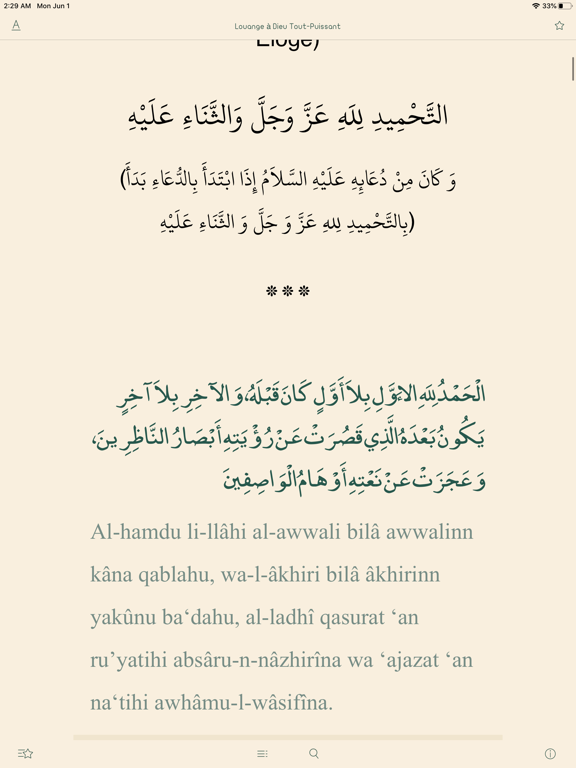 2:29 AM Mon Jun 1 33%
A
Louange à Dieu Tout-Puissant
Eloge)
التَّحْمِيدِ لِلَّهِ عَزَّ وَجَلَّ وَالثَّنَاءِ عَلَيْهِ
(وَ كَانَ مِنْ دُعَايِهِ عَلَيْهِ السَّلاَمُ إِذَا ابْتَدَأَ بِالدُّعَاءِ بَدَأَ
بِالتَّحْمِيدِ لِلهِ عَزَّ وَ جَلَّ وَ الثَّنَاءِ عَلَيْهِ)
***
الْحَمْدُ لِلَّهِ الاَوَّلِ بِلاَ أَوَّلٍ كَانَ قَبْلَهُ، وَ الآخِرِ بِلاَ آخِرٍ
يَكُونُ بَعْدَهُ الَّذِي قَصُرَتْ عَنْ رُؤْيَتِهِ أَبْصَارُ النَّاظِرِينَ،
وَ عَجَزَتْ عَنْ نَعْتِهِ أَوْهَامُ الْوَاصِفِينَ
Al-hamdu li-llâhi al-awwali bilâ awwalinn
kâna qablahu, wa-l-âkhiri bilâ âkhirinn
yakûnu ba‘dahu, al-ladhî qasurat ‘an
ru’yatihi absâru-n-nâzhirîna wa ‘ajazat ‘an
na‘tihi awhâmu-l-wâsifîna.